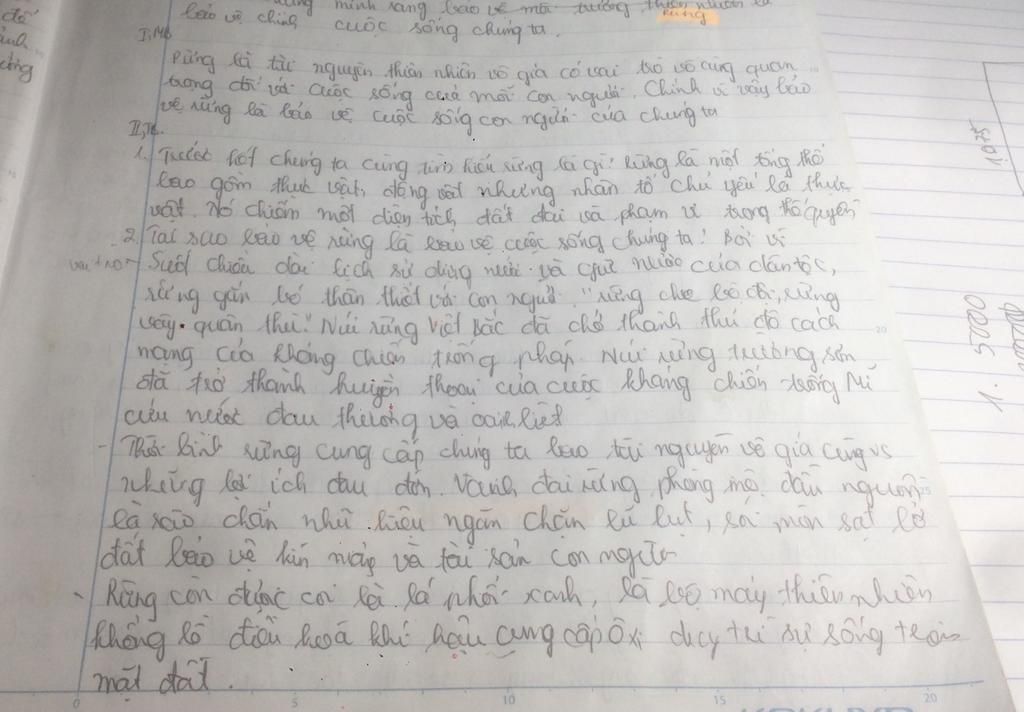 minh rang bảo vệ môi trường thiên nhiên là
rừng
đố
bảo vệ chính cuộc sống chúng ta.
I, MB
Rừng là tài nguyên thiên nhiên vô giá có vai trò vô cùng quan
trọng đối với cuộc sống của mỗi con người. Chính vì vậy bảo
vệ rừng là bảo vệ cuộc sống con người của chúng ta
II, TB.
1. Trước hết chúng ta cùng tìm hiểu rừng là gì? Rừng là một tổng thể
bao gồm thực vật, động vật nhưng nhân tố chủ yếu là thực
vật. Nó chiếm một diện tích đất đai và phạm vi trong thổ quyển
2. Tại sao bảo vệ rừng là bảo vệ cuộc sống chúng ta? Bởi vì
vai trò - Suốt chiều dài lịch sử dựng nước và giữ nước của dân tộc,
rừng gắn bó thân thiết với con người. "rừng che bộ đội, rừng
vây quân thù." Núi rừng Việt Bắc đã trở thành thủ đô cách
mạng của kháng chiến trống pháp. Núi rừng trường sơn
đã trở thành huyền thoại của cuộc kháng chiến trống Mĩ
cứu nước đau thương và oanh liệt
- Thời bình rừng cung cấp chúng ta bao tài nguyên vô giá cùng vs
những lợi ích Vành đai rừng phòng hộ đầu nguồn
là rào chắn hữu hiệu ngăn chặn lũ lụt, sói mòn sạt lở
đất bảo vệ tính mạng và tài sản con người
- Rừng còn được coi là lá phổi xanh, là bộ máy thiên nhiên
khổng lồ điều hoà khí hậu cung cấp ôxi duy trì sự sống trên
mặt đất.
1075
1. 5000
0 5 10 15 20
20
25